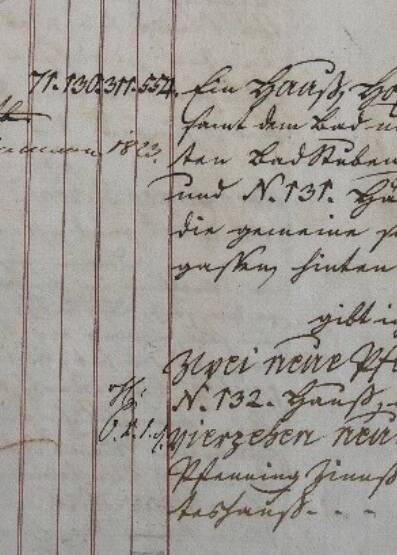 71. 130. 311. 554. Ein Hauß, Ho
samt dem Bad
1823. ten Bad Stuben
und N. 131. Hä
die gemeine
gassen, hinten
gibt
Zwei neue Pf
N. 132. Hauß,
vierzehen neu
Pfenning Zinnß
teshauß. - -